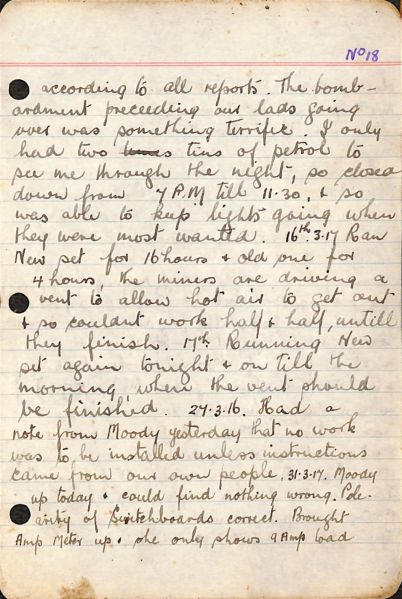 No 18
according to all reports. The bomb-
ardment preceeding our lads going
over was something terrific. I only
had two tins of petrol to
see me through the night, so closed
down from 7 P.M till 11.30, & so
was able to keep lights going when
they were most wanted. 16th.3.17 Ran
New set for 16 hours & old one for
4 hours, the miners are driving a
vent to allow hot air to get out
& so couldnt work half & half, untill
they finish. 17th Running New
set again tonight & on till the
morning, when the vent should
be finished. 27.3.16. Had a
note from Moody yesterday that no work
was to be installed unless instructions
came from our own people. 31.3.17. Moody
up today & could find nothing wrong. Pole-
arity of Switchboards correct. Brought
Amp Meter up & she only shows 9 Amp load